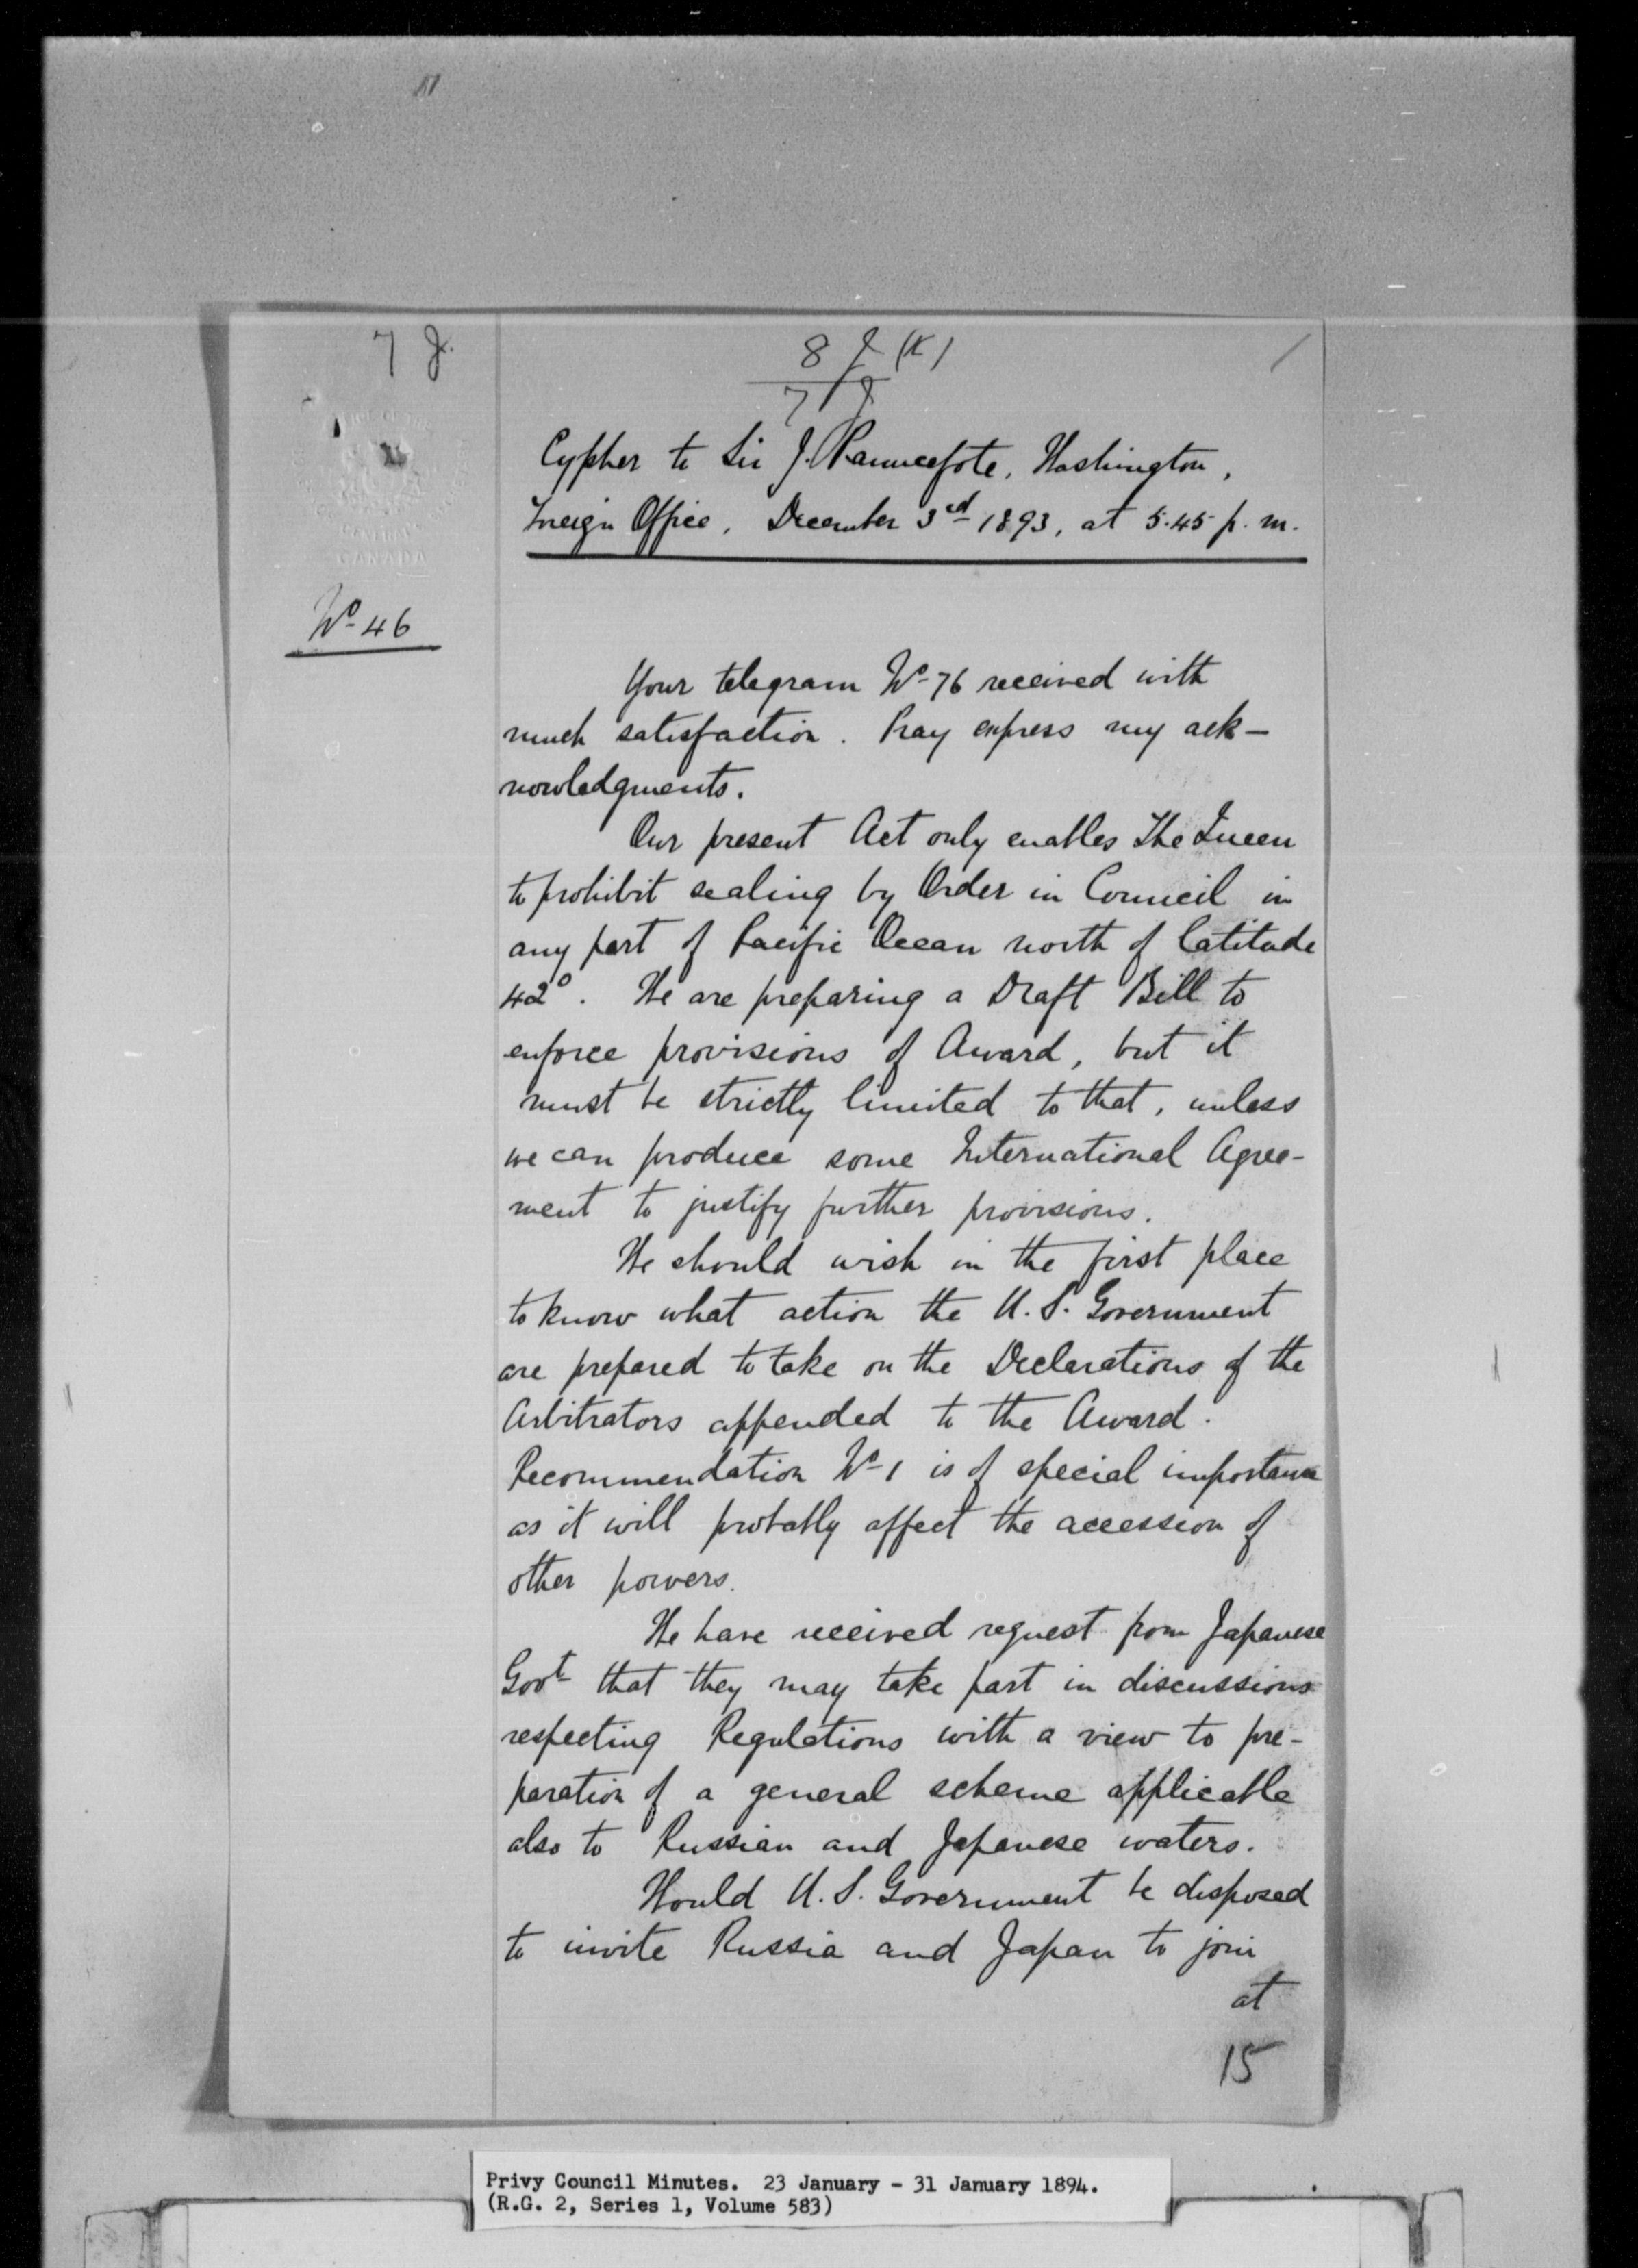 7 J.
8 J (K)
7 J
Cypher to Sir J. Pauncefote, Washington,
Foreign Office, December 3rd 1893, at 5.45 p. m.
No 46
Your telegram No 76 received with
much satisfaction. Pray express my ack-
nowledgments.
Our present Act only enables The Queen
to prohibit sealing by Order in Council in
any part of Pacific Ocean north of latitude
42°. We are preparing a Draft Bill to
enforce provisions of Award, but it
must be strictly limited to that, unless
we can produce some International Agree-
ment to justify further provisions.
We should wish in the first place
to know what action the U.S. Government
are prepared to take on the Declarations of the
Arbitrators appended to the Award.
Recommendation No 1 is of special importance
as it will probably affect the accession of
other powers.
We have received request from Japanese
Govt that they may take part in discussions
respecting Regulations with a view to pre-
paration of a general scheme applicable
also to Russian and Japanese waters.
Would U.S. Government be disposed
to invite Russia and Japan to join
at
15
Privy Council Minutes. 23 January - 31 January 1894.
(R.G. 2, Series 1, Volume 583)